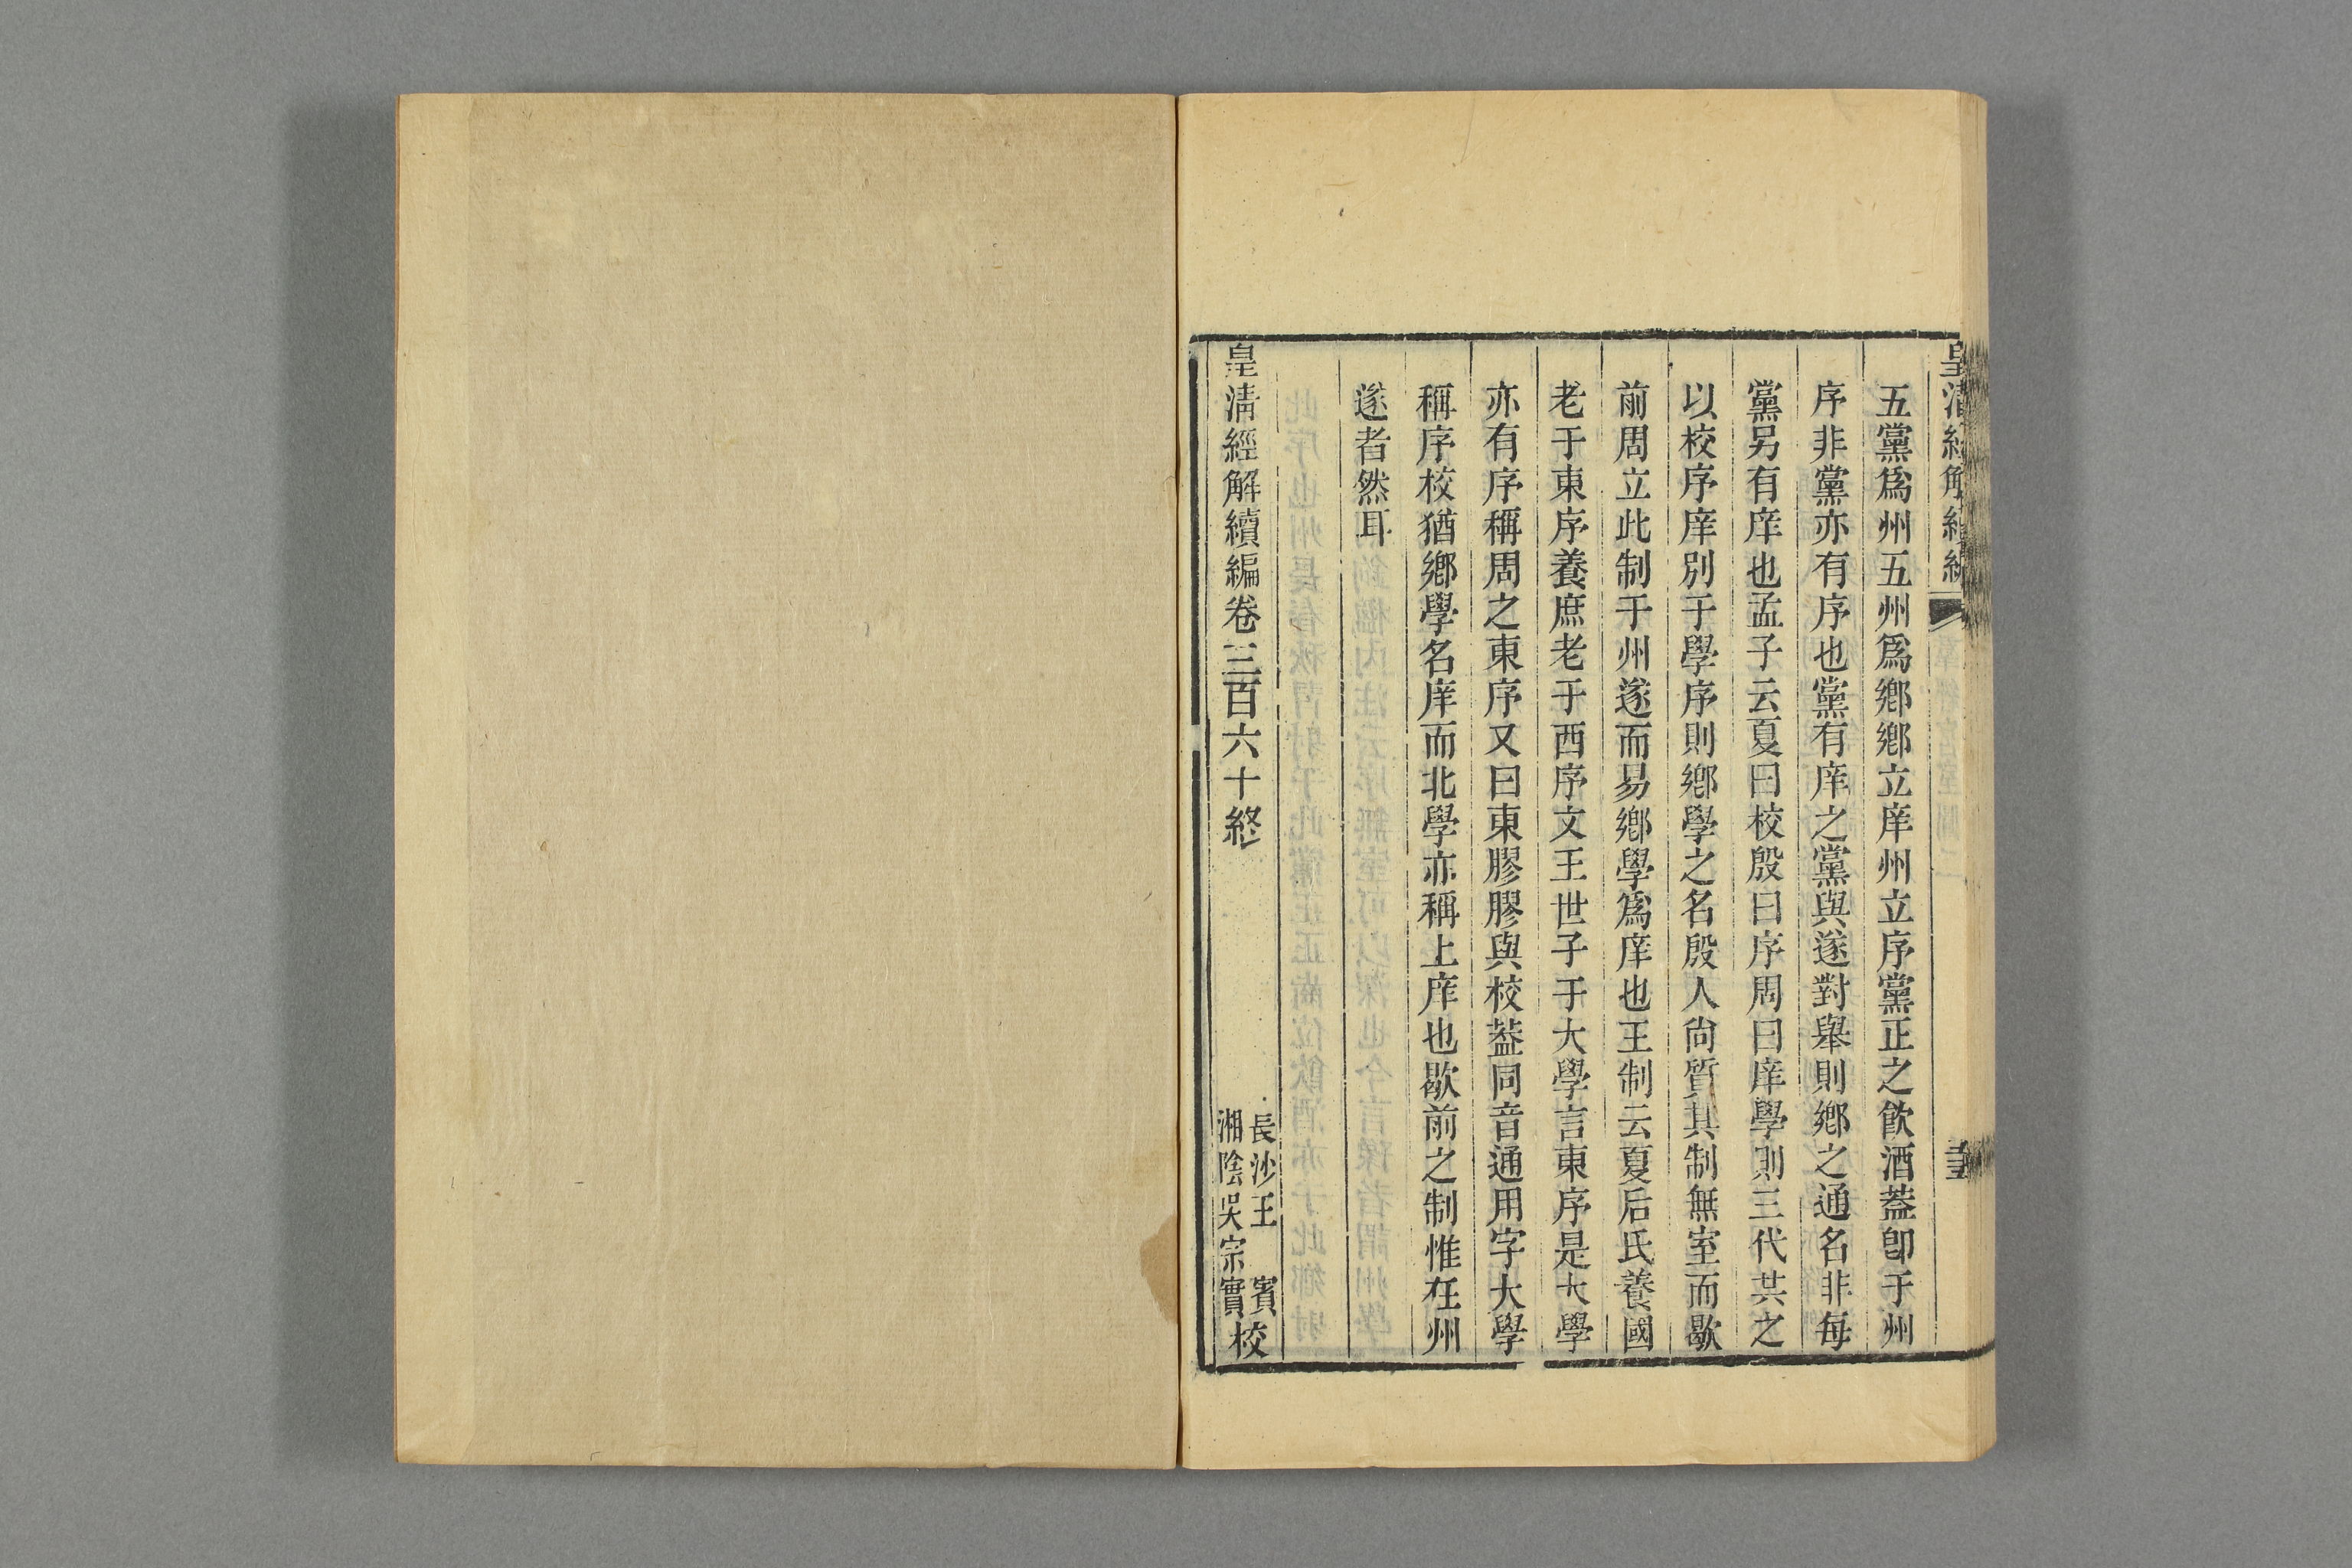 皇清經解續編
五黨爲州五州爲鄉鄉立庠州立序黨正之飮酒葢卽于州
序非黨亦有序也黨有庠之黨與遂對舉則鄉之通名非每
黨另有庠也孟子云夏曰校殷曰序周曰庠學則三代共之
以校序庠別于學序則鄉學之名殷人尙質其制無室而歇
前周立此制于州遂而易鄉學爲庠也王制云夏后氏養國
老于東序養庶老于西序文王世子于大學言東序是大學
亦有序稱周之東序又曰東膠膠與校葢同音通用字大學
稱序校猶鄉學名庠而北學亦稱上庠也歇前之制惟在州
遂者然耳
皇清經解續編卷三百六十終
長沙王賓
湘陰吳宗實
校